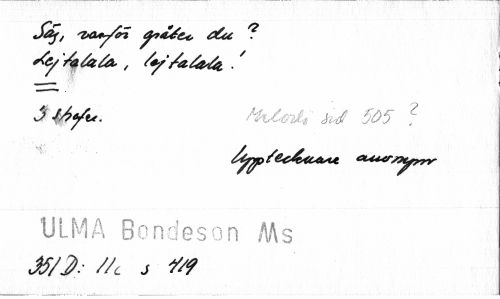 Säg, varför gråter du?
Lejtalala, lejtalala!
3 strofer.
Melodi sid 505 ?
Upptecknare anonym
ULMA Bondeson Ms
351 D: 11c s 419